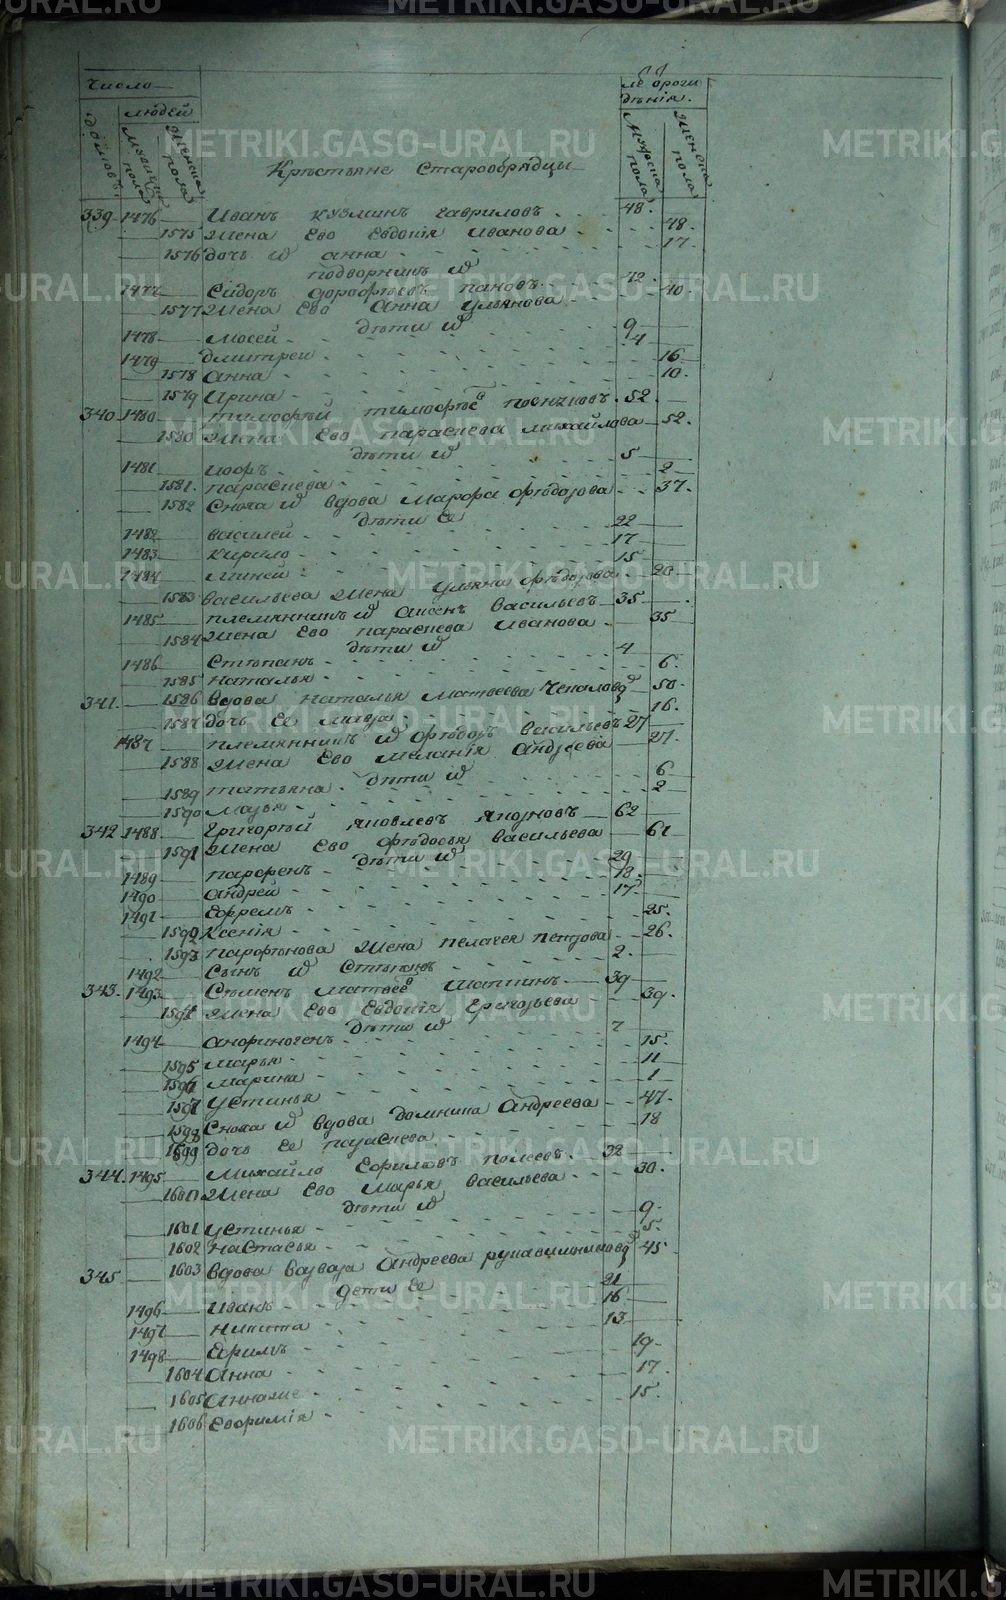 Число
людей
Домовъ
Мужеска пола
Женска пола
Крестьяне Старообрядцы
Мужеска пола
Женска пола
339 1476 Иванъ Кузминъ Гавриловъ 48.
1575 Жена Его Евдокія Иванова 48.
1576 дочь и анна 17.
подворникъ и
1477 Сидоръ дорофѣевъ пановъ 42
1577 Жена Его Анна Ульянова 40.
дѣти и
1478 мосей 9
1479 дмитрей 4
1578 Анна 16
1579 Ирина 10.
340 1480 тимофѣй тимофѣе 52.
1580 Жена Его параскева михайлова 52.
дѣти и
1481 5
1581. параскева 2
1582 Сноха и вдова Марфа Ѳедотова 37.
дѣти Ее
1482 василей 22
1483 кирило 17
1484 миней 15
1583 васильева Жена Ульяна 20
1485 племянникъ и васильевъ 35
1584 Жена Его параскева Иванова 35
дѣти и
1486 Степанъ 4
1585 наталья 6.
341. 1586 вдова наталья матвеева 50.
1587 дочь Ее мавра 16.
1487 племянникъ и Ѳедоръ васильевъ 27
1588 Жена Его меланія андреева 27.
дѣти и
1589 татьяна 6
1590 марья 2
342 1488 григорѣй яковлевъ 62
1591 Жена Его Ѳедосья васильева 61
дѣти и
1489 парфенъ 29
1490 андрей 18.
1491 Ефремъ 17
1592 Ксенія 25.
1593 парфенова Жена пелагея петрова 26.
1492 Сынъ и Степанъ 2.
343. 1493 Семенъ матвее 39
1594 Жена Его Евдокія Григорьева 39.
дѣти и
1494 анфиногенъ 7
1595 марья 15.
1596 марина 11
1597 Устинья 1
1598 Сноха и вдова домника Андреева 47.
1599 дочь Ее параскева 18
344. 1495 михайло Ефимовъ 32
1600 Жена Его марья васильева 30.
дѣти и
1601 Устинья 9.
1602 настасья 5.
345 1603 вдова варвара Андреева рукавишникова 45
дети Ее
1496 Иванъ 21
1497 никита 16
1498 Ефимъ 13
1604 Анна 19.
1605 17.
1606 Евфимія 15.
METRIKI.GASO-URAL.RU